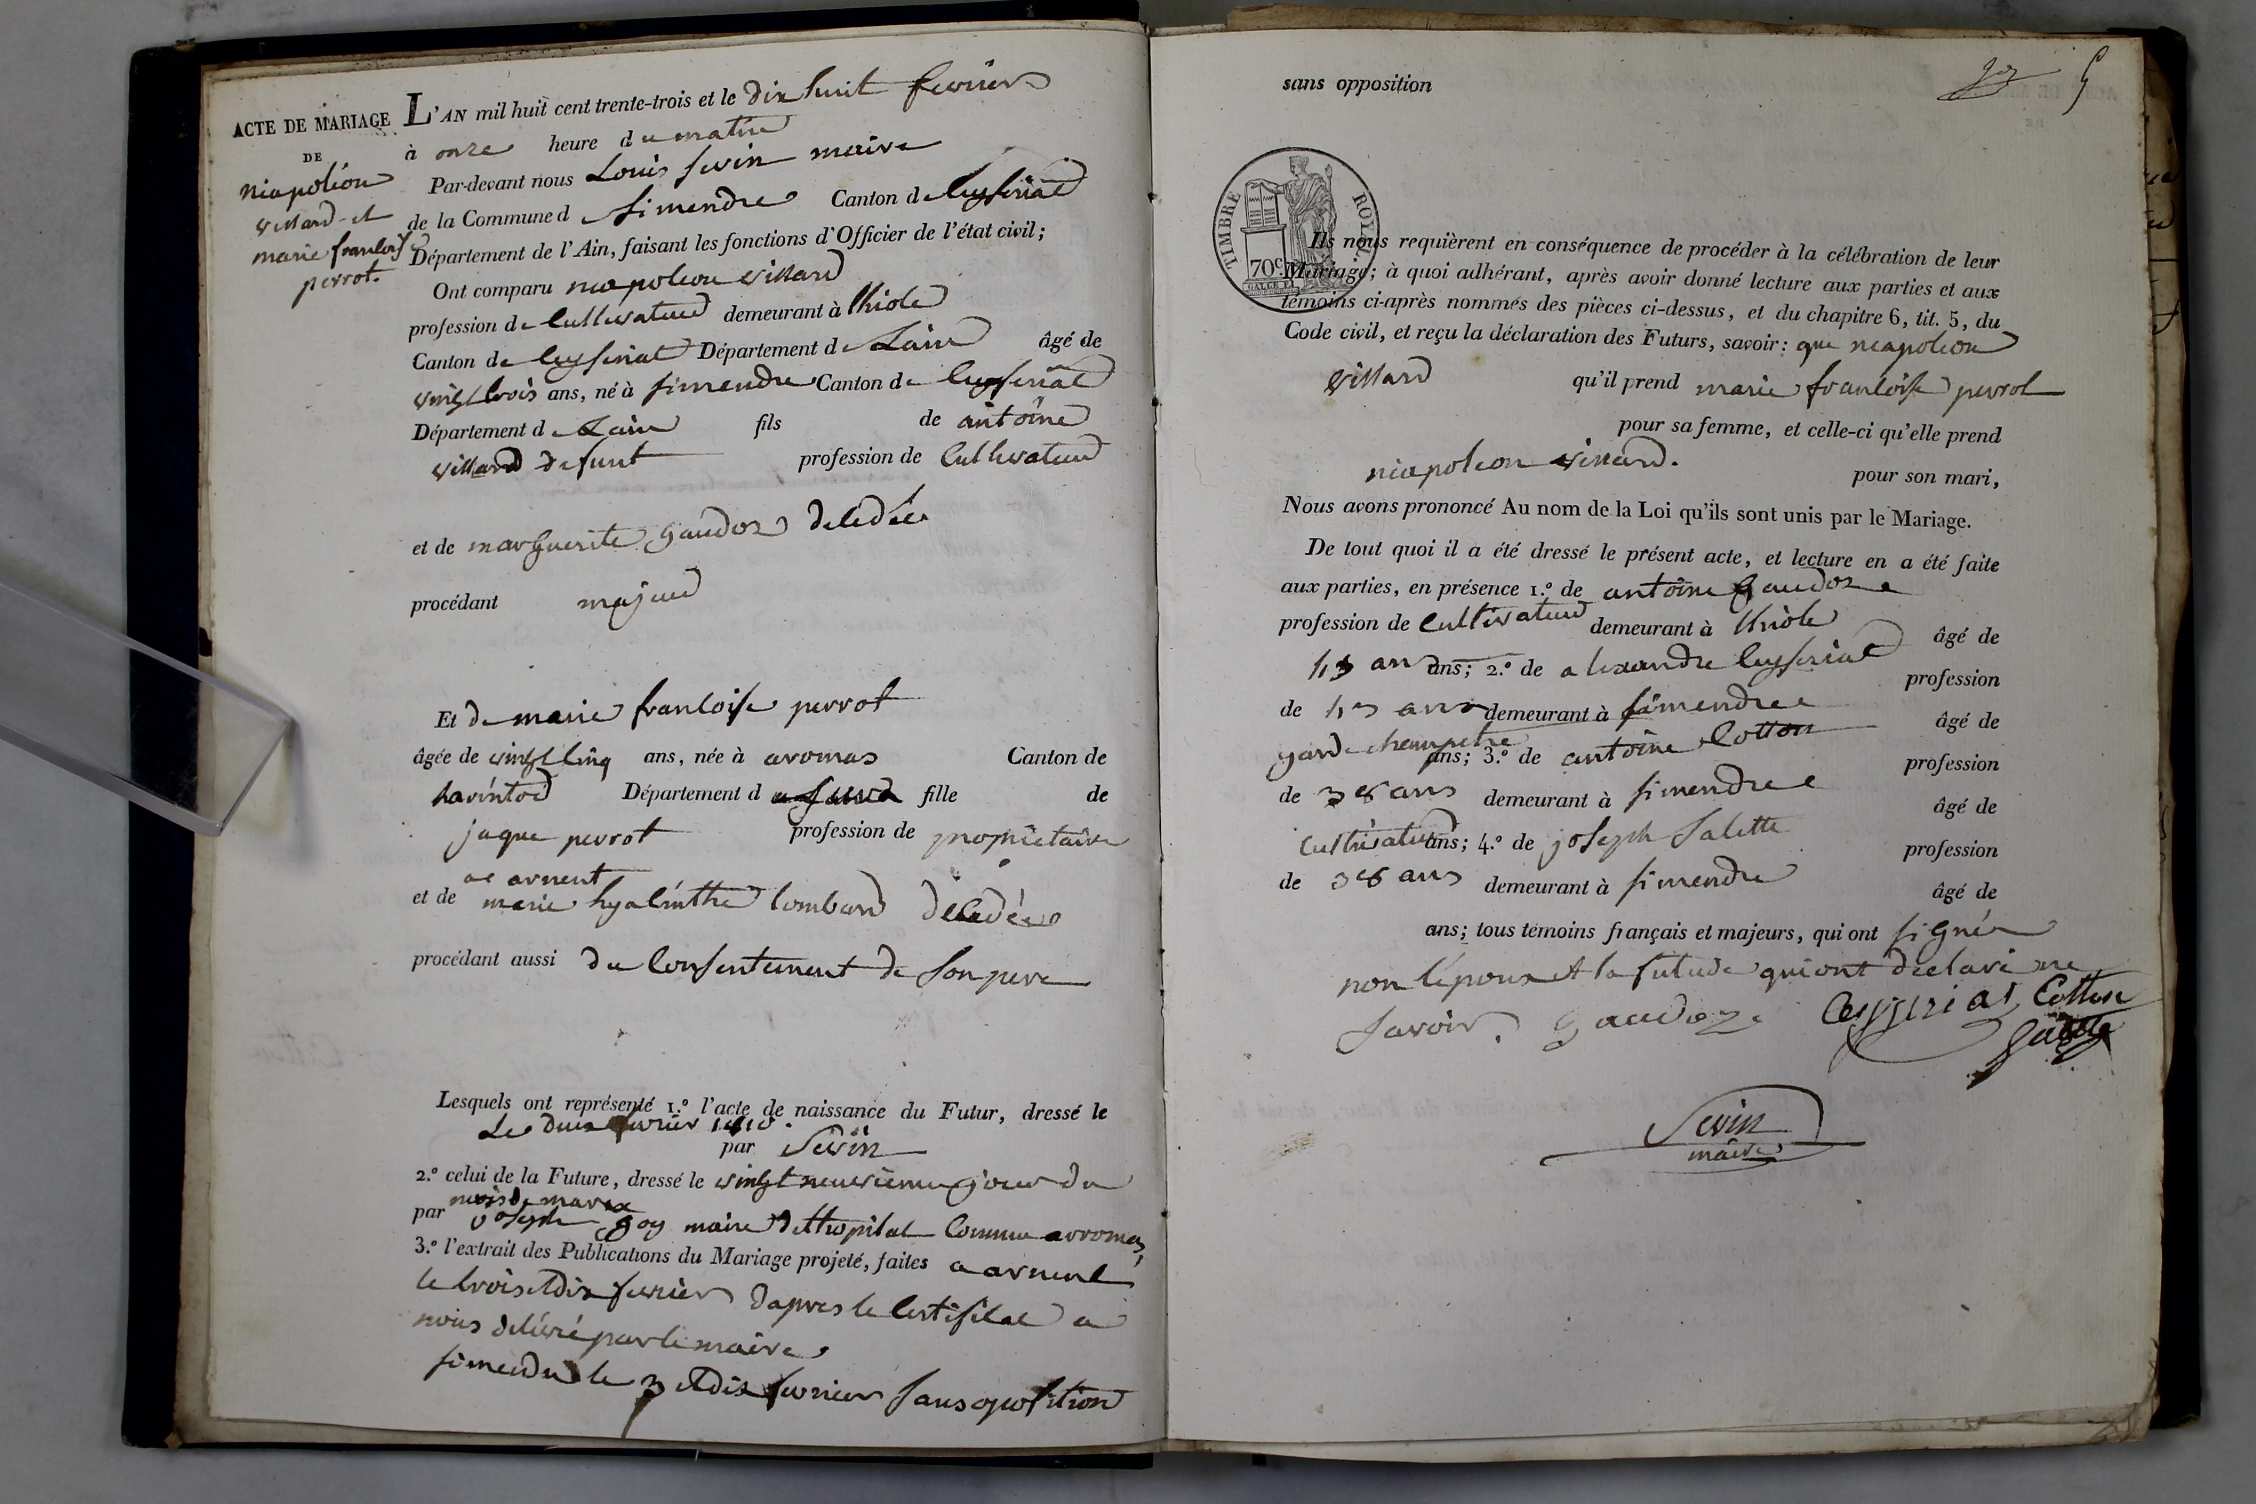 ACTE DE MARIAGE
DE
niapoléon
villard et
marie francoise
perrot.
L'AN mil huit cent trente-trois et le dix huit fevrier
à onze heure du matin
Par-devant nous Louis sevin maire
de la Commune d Simendre Canton de Ceyseriat
Département de l'Ain, faisant les fonctions d'Officier de l'état civil;
Ont comparu niapoleon villard
profession de Cultivateur demeurant à thiole
Canton de Ceyseriat Département de Lain âgé de
vingt trois ans, né à simendre Canton de Ceyseriat
Département de Lain fils de antoine
villard defunt profession de Cultivateur
et de marguerite gaudoz decedée
procédant majeur
Et de marie francoise perrot
âgée de vingt cinq ans, née à aromas Canton de
Département d fille de
jaque perrot profession de propriétaire
a arnent
et de marie hyacinthe lombard décédée
procédant aussi du Consentement de son pere
Lesquels ont représenté 1.º l'acte de naissance du Futur, dressé le
Le fevrier 1810.
par Sevin
2.º celui de la Future, dressé le vingt neuvieme jour du
mois de mars
par joseph goy maire de lhopital Commune arromas,
3.º l'extrait des Publications du Mariage projeté, faites a arnent
le trois et dix fevrier dapres le Certificat a
nous délivré par le maire
simendre le 3 et dix fevrier sans oposition
sans opposition
5
TIMBRE ROYAL
70c
Ils nous requièrent en conséquence de procéder à la célébration de leur
Mariage; à quoi adhérant, après avoir donné lecture aux parties et aux
témoins ci-après nommés des pièces ci-dessus, et du chapitre 6, tit. 5, du
Code civil, et reçu la déclaration des Futurs, savoir: que niapoleon
villard qu'il prend marie francoise perrot
pour sa femme, et celle-ci qu'elle prend
niapoleon villard. pour son mari,
Nous avons prononcé Au nom de la Loi qu'ils sont unis par le Mariage.
De tout quoi il a été dressé le présent acte, et lecture en a été faite
aux parties, en présence 1.º de antoine gaudoz
profession de Cultivateur demeurant à thiole âgé de
ans ans; 2.º de alexandre Ceyseriat profession
de ans demeurant à simendre âgé de
garde champetre ans; 3.º de antoine Cotton profession
de 36 ans demeurant à simendre âgé de
Cultivateur ans; 4.º de joseph Salette profession
de 36 ans demeurant à simendre âgé de
ans; tous témoins français et majeurs, qui ont signés
non lépoux et la future qui ont déclaré ne
savoir. gaudoz Ceyseriat Cotton
Salette
Sevin
maire